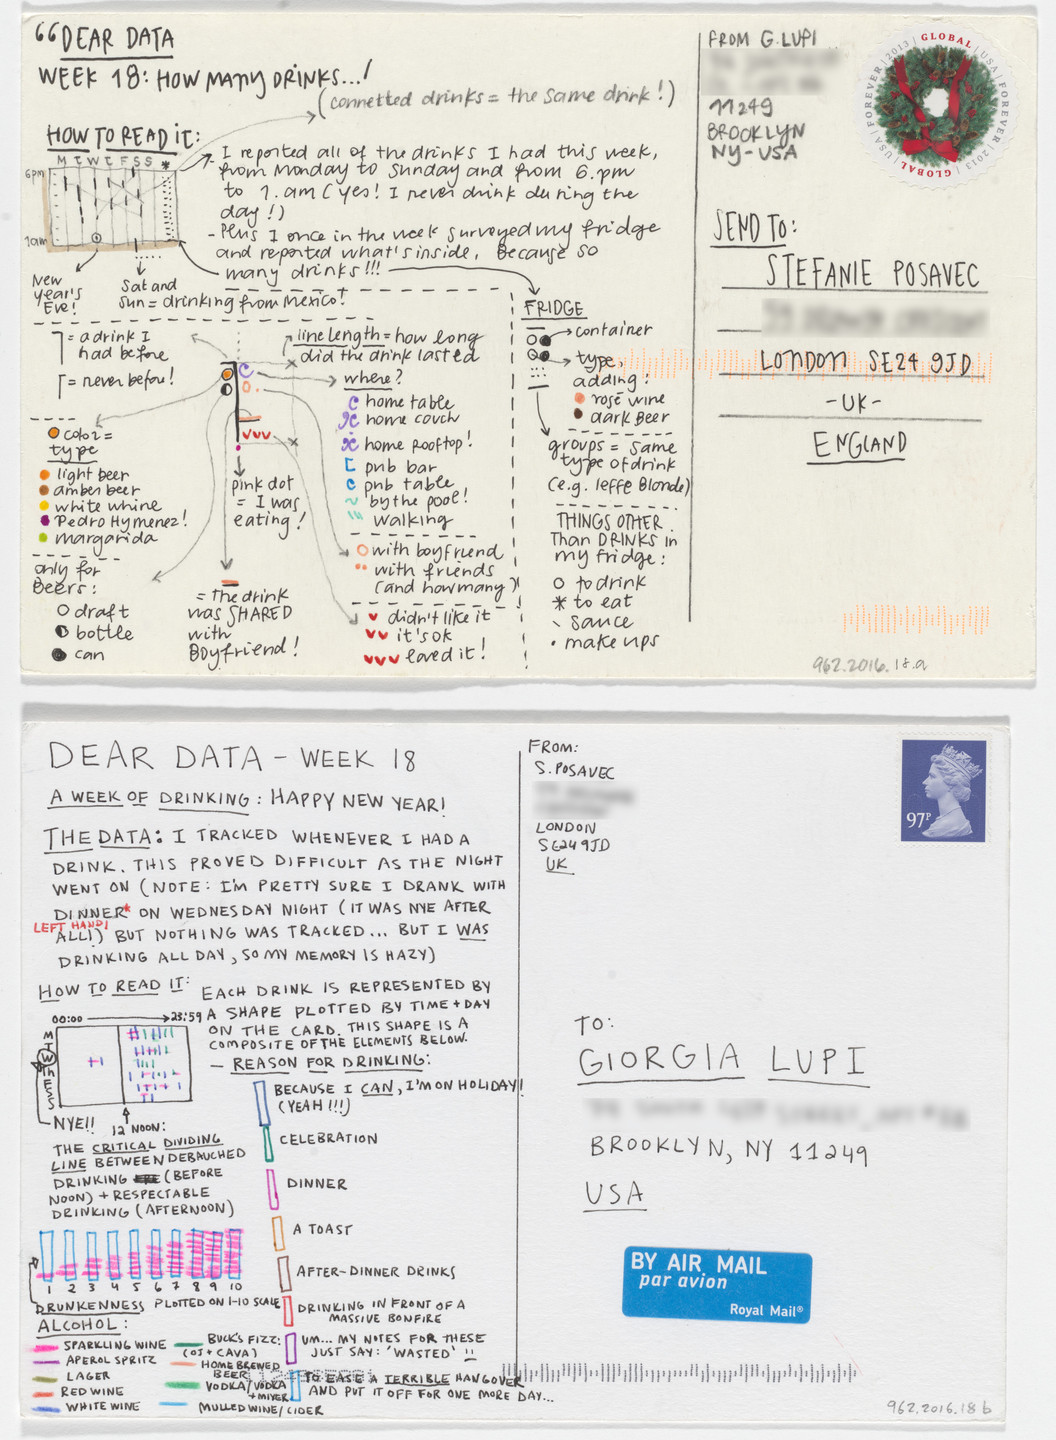 “DEAR DATA
WEEK 18: HOW MANY DRINKS...!
(connetted drinks = the same drink!)
HOW TO READ IT:
M T W T F S S *
6pm
1am
- I reported all of the drinks I had this week,
from Monday to Sunday and from 6.pm
to 1.am (yes! I never drink during the
day!)
- Plus I once in the week surveyed my fridge
and reported what's inside, because so
many drinks!!!
New
year's
Eve!
Sat and
Sun = drinking from Mexico!
= a drink I
had before
= never before!
line length = how long
did the drink lasted
color =
type
light beer
amber beer
white whine
Pedro Hymenez!
margarida
only for
Beers:
draft
bottle
can
pink dot
= I was
eating!
= the drink
was SHARED
with
Boyfriend!
where?
home table
home couch
home rooftop!
pub bar
pub table
by the pool!
walking
with boyfriend
with friends
(and how many)
didn't like it
it's ok
loved it!
FRIDGE
container
type,
adding:
rosè wine
dark Beer
groups = same
type of drink
(e.g. leffe Blonde)
THINGS OTHER
Than DRINKS in
my fridge:
to drink
* to eat
sauce
make ups
FROM G. LUPI
11249
BROOKLYN
NY-USA
GLOBAL | USA | FOREVER | 2013 | GLOBAL | USA | FOREVER | 2013
SEND TO:
STEFANIE POSAVEC
LONDON SE24 9JD
-UK-
ENGLAND
962.2016.18.a
DEAR DATA - WEEK 18
A WEEK OF DRINKING: HAPPY NEW YEAR!
THE DATA: I TRACKED WHENEVER I HAD A
DRINK. THIS PROVED DIFFICULT AS THE NIGHT
WENT ON (NOTE: I'M PRETTY SURE I DRANK WITH
DINNER* ON WEDNESDAY NIGHT (IT WAS NYE AFTER
LEFT HAND!
ALL!) BUT NOTHING WAS TRACKED... BUT I WAS
DRINKING ALL DAY, SO MY MEMORY IS HAZY)
HOW TO READ IT: EACH DRINK IS REPRESENTED BY
A SHAPE PLOTTED BY TIME + DAY
ON THE CARD. THIS SHAPE IS A
COMPOSITE OF THE ELEMENTS BELOW.
00:00 23:59
M
T
W
Th
F
S
S
NYE!!
12 NOON:
THE CRITICAL DIVIDING
LINE BETWEEN DEBAUCHED
DRINKING (BEFORE
NOON) + RESPECTABLE
DRINKING (AFTERNOON)
- REASON FOR DRINKING:
BECAUSE I CAN, I'M ON HOLIDAY!
(YEAH!!!)
CELEBRATION
DINNER
A TOAST
AFTER-DINNER DRINKS
DRINKING IN FRONT OF A
MASSIVE BONFIRE
UM... MY NOTES FOR THESE
JUST SAY: 'WASTED' !!
TO EASE A TERRIBLE HANGOVER
AND PUT IT OFF FOR ONE MORE DAY...
1 2 3 4 5 6 7 8 9 10
DRUNKENNESS PLOTTED ON 1-10 SCALE
ALCOHOL:
SPARKLING WINE
APEROL SPRITZ
LAGER
RED WINE
WHITE WINE
BUCK'S FIZZ:
(OJ + CAVA)
HOME BREWED
BEER
VODKA/VODKA
+ MIXER
MULLED WINE/CIDER
FROM:
S. POSAVEC
LONDON
SE24 9JD
UK
97P
TO:
GIORGIA LUPI
BROOKLYN, NY 11249
USA
BY AIR MAIL
par avion
Royal Mail®
962.2016.18 b